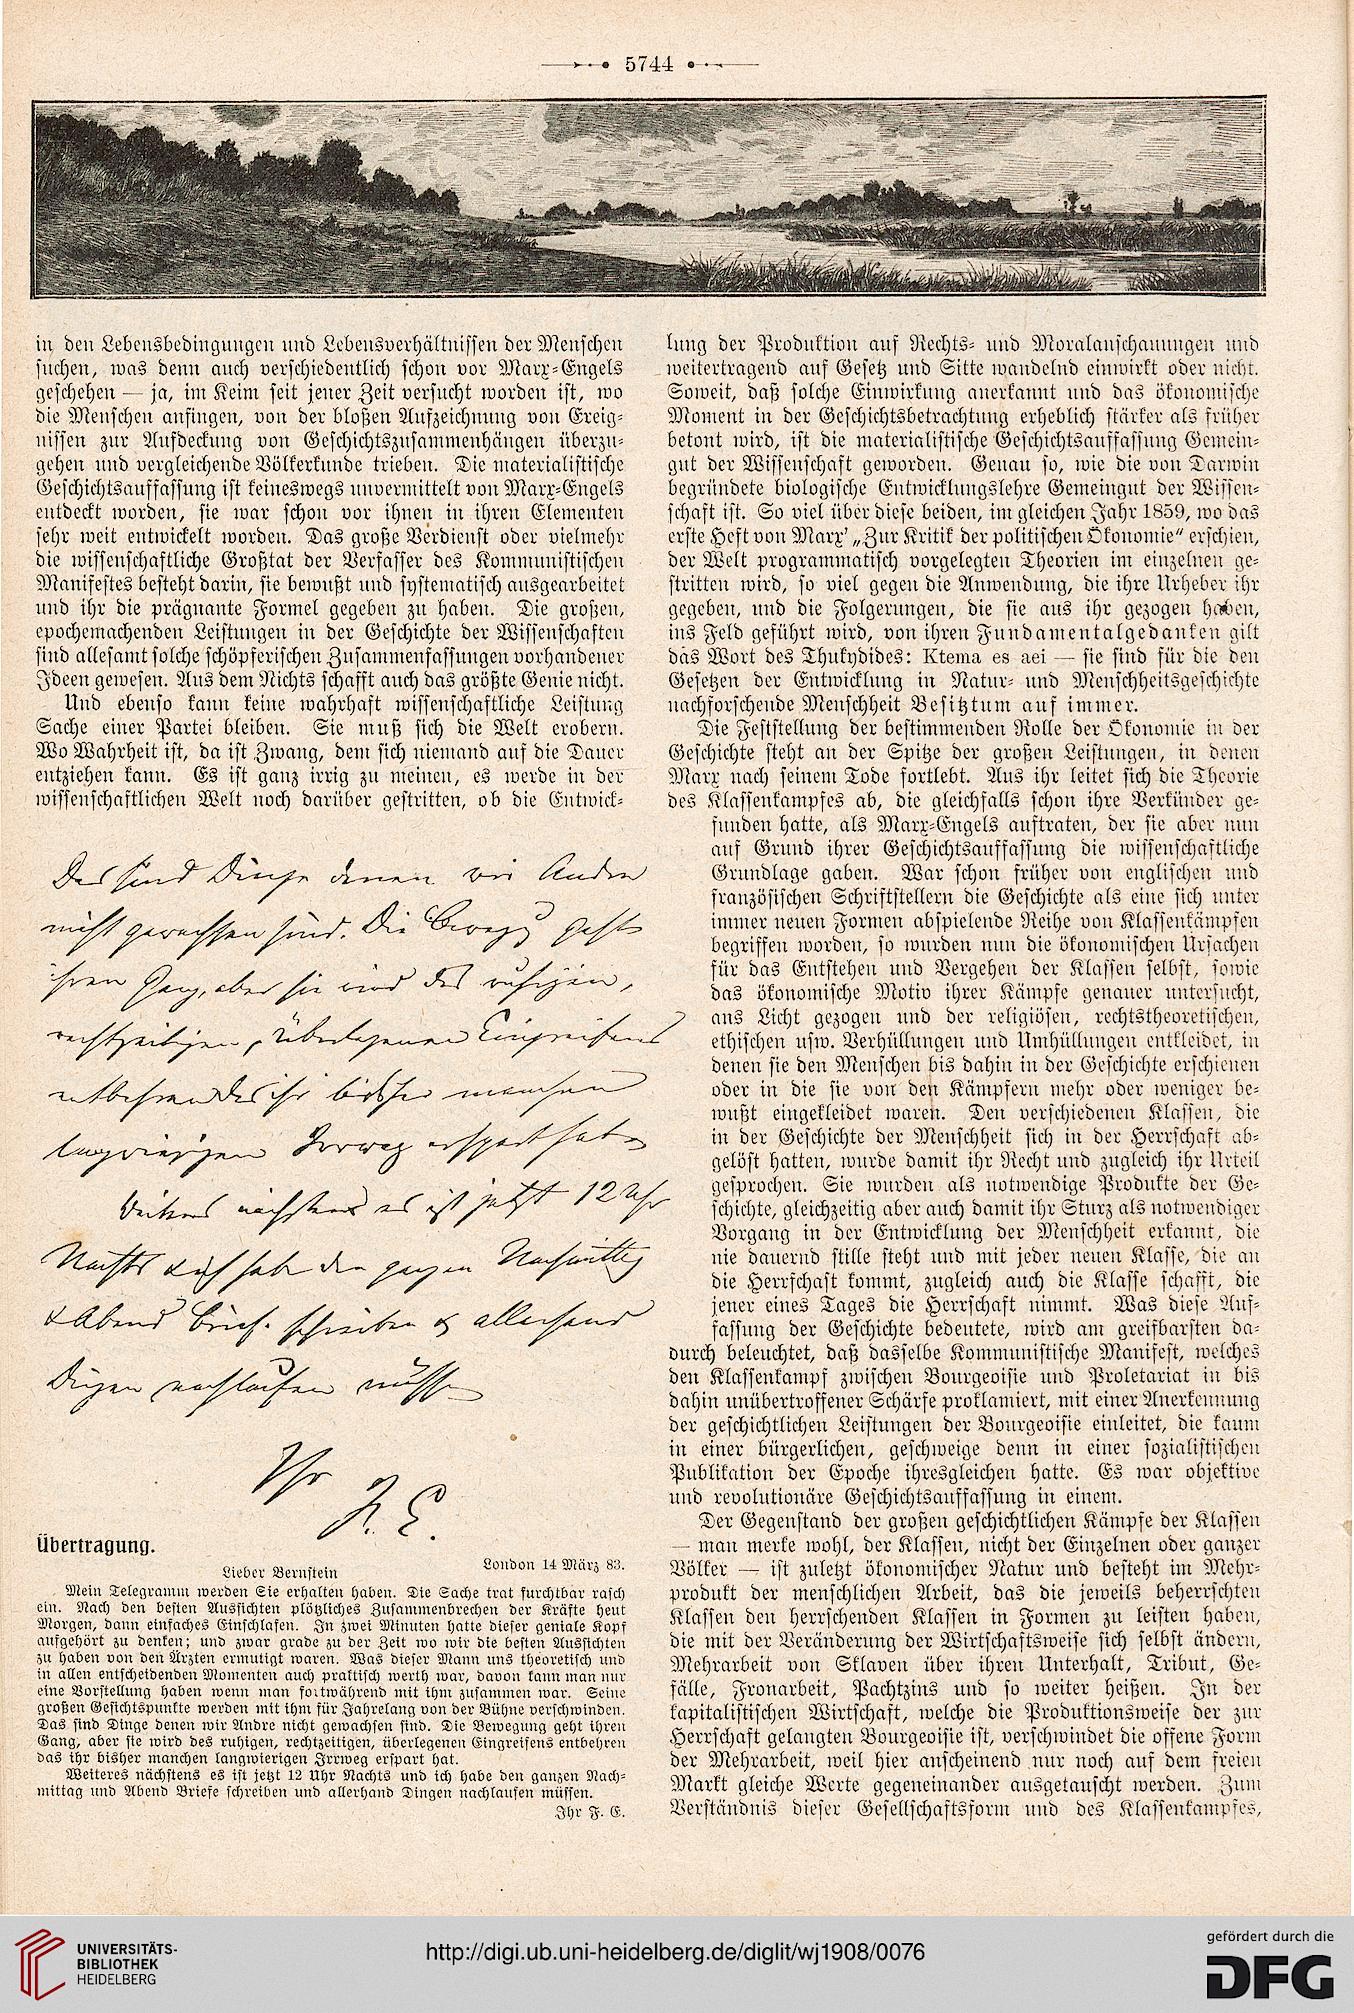 5744
in den Lebensbedingungen und Lebensverhältnissen der Menschen
suchen, was denn auch verschiedentlich schon vor Marx-Engels
geschehen — ja, im Keim seit jener Zeit versucht worden ist, wo
die Menschen anfingen, von der bloßen Aufzeichnung von Ereig-
nissen zur Aufdeckung von Geschichtszusammenhängen überzu-
gehen und vergleichende Völkerkunde trieben. Die materialistische
Geschichtsauffassung ist keineswegs unvermittelt von Marx-Engels
entdeckt worden, sie war schon vor ihnen in ihren Elementen
sehr weit entwickelt worden. Das große Verdienst oder vielmehr
die wissenschaftliche Großtat der Verfasser des Kommunistischen
Manifestes besteht darin, sie bewußt und systematisch ausgearbeitet
und ihr die prägnante Formel gegeben zu haben. Die großen,
epochemachenden Leistungen in der Geschichte der Wissenschaften
sind allesamt solche schöpferischen Zusammenfassungen vorhandener
Ideen gewesen. Aus dem Nichts schafft auch das größte Genie nicht.
Und ebenso kann keine wahrhaft wissenschaftliche Leistung
Sache einer Partei bleiben. Sie muß sich die Welt erobern.
Wo Wahrheit ist, da ist Zwang, dem sich niemand auf die Dauer
entziehen kann. Es ist ganz irrig zu meinen, es werde in der
wissenschaftlichen Welt noch darüber gestritten, ob die Entwick-
Das sind Dinge denen wir Andre
nicht gewachsen sind. Die Bewegg geht
ihren Gang, aber sie wird des ruhigen,
rechtzeitigen, überlegenen Eingreifens
entbehren das ihr bisher manchen
langwierigen Irrweg erspart hat.
Weiteres nächstens es ist jetzt 12 Uhr
Nachts & ich habe den ganzen Nachmittag
& Abend Briefe schreiben & allerhand
Dingen nachlaufen müssen
Ihr
F. E.
Übertragung.
London 14 März 83.
Lieber Bernstein
Mein Telegramm werden Sie erhalten haben. Die Sache trat furchtbar rasch
ein. Nach den besten Aussichten plötzliches Zusammenbrechen der Kräfte heut
Morgen, dann einfaches Einschlafen. In zwei Minuten hatte dieser geniale Kopf
aufgehört zu denken; und zwar grade zu der Zeit wo wir die besten Aussichten
zu haben von den Ärzten ermutigt waren. Was dieser Mann uns theoretisch und
in allen entscheidenden Momenten auch praktisch werth war, davon kann man nur
eine Vorstellung haben wenn man fortwährend mit ihm zusammen war. Seine
großen Gesichtspunkte werden mit ihm für Jahrelang von der Bühne verschwinden.
Das sind Dinge denen wir Andre nicht gewachsen sind. Die Bewegung geht ihren
Gang, aber sie wird des ruhigen, rechtzeitigen, überlegenen Eingreifens entbehren
das ihr bisher manchen langwierigen Irrweg erspart hat.
Weiteres nächstens es ist jetzt 12 Uhr Nachts und ich habe den ganzen Nach-
mittag und Abend Briefe schreiben und allerhand Dingen nachlaufen müssen.
Ihr F. E.
lung der Produktion auf Rechts- und Moralanschauungen und
weitertragend auf Gesetz und Sitte wandelnd einwirkt oder nicht.
Soweit, daß solche Einwirkung anerkannt und das ökonomische
Moment in der Geschichtsbetrachtung erheblich stärker als früher
betont wird, ist die materialistische Geschichtsauffassung Gemein-
gut der Wissenschaft geworden. Genau so, wie die von Darwin
begründete biologische Entwicklungslehre Gemeingut der Wissen-
schaft ist. So viel über diese beiden, im gleichen Jahr 1859, wo das
erste Heft von Marx' „Zur Kritik der politischen Ökonomie“ erschien,
der Welt programmatisch vorgelegten Theorien im einzelnen ge-
stritten wird, so viel gegen die Anwendung, die ihre Urheber ihr
gegeben, und die Folgerungen, die sie aus ihr gezogen haben,
ins Feld geführt wird, von ihren Fundamentalgedanken gilt
das Wort des Thukydides: Ktema es aei — sie sind für die den
Gesetzen der Entwicklung in Natur- und Menschheitsgeschichte
nachforschende Menschheit Besitztum auf immer.
Die Feststellung der bestimmenden Rolle der Ökonomie in der
Geschichte steht an der Spitze der großen Leistungen, in denen
Marx nach seinem Tode fortlebt. Aus ihr leitet sich die Theorie
des Klassenkampfes ab, die gleichfalls schon ihre Verkünder ge-
funden hatte, als Marx-Engels auftraten, der sie aber nun
auf Grund ihrer Geschichtsauffassung die wissenschaftliche
Grundlage gaben. War schon früher von englischen und
französischen Schriftstellern die Geschichte als eine sich unter
immer neuen Formen abspielende Reihe von Klassenkämpfen
begriffen worden, so wurden nun die ökonomischen Ursachen
für das Entstehen und Vergehen der Klassen selbst, sowie
das ökonomische Motiv ihrer Kämpfe genauer untersucht,
ans Licht gezogen und der religiösen, rechtstheoretischen,
ethischen usw. Verhüllungen und Umhüllungen entkleidet, in
denen sie den Menschen bis dahin in der Geschichte erschienen
oder in die sie von den Kämpfern mehr oder weniger be-
wußt eingekleidet waren. Den verschiedenen Klassen, die
in der Geschichte der Menschheit sich in der Herrschaft ab-
gelöst hatten, wurde damit ihr Recht und zugleich ihr Urteil
gesprochen. Sie wurden als notwendige Produkte der Ge-
schichte, gleichzeitig aber auch damit ihr Sturz als notwendiger
Vorgang in der Entwicklung der Menschheit erkannt, die
nie dauernd stille steht und mit jeder neuen Klasse, die an
die Herrschaft kommt, zugleich auch die Klasse schafft, die
jener eines Tages die Herrschaft nimmt. Was diese Auf-
fassung der Geschichte bedeutete, wird am greifbarsten da-
durch beleuchtet, daß dasselbe Kommunistische Manifest, welches
den Klassenkampf zwischen Bourgeoisie und Proletariat in bis
dahin unübertroffener Schärfe proklamiert, mit einer Anerkennung
der geschichtlichen Leistungen der Bourgeoisie einleitet, die kaum
in einer bürgerlichen, geschweige denn in einer sozialistischen
Publikation der Epoche ihresgleichen hatte. Es war objektive
und revolutionäre Geschichtsauffassung in einem.
Der Gegenstand der großen geschichtlichen Kämpfe der Klassen
— man merke wohl, der Klassen, nicht der Einzelnen oder ganzer
Völker — ist zuletzt ökonomischer Natur und besteht im Mehr-
produkt der menschlichen Arbeit, das die jeweils beherrschten
Klassen den herrschenden Klassen in Formen zu leisten haben,
die mit der Veränderung der Wirtschaftsweise sich selbst ändern,
Mehrarbeit von Sklaven über ihren Unterhalt, Tribut, Ge-
fälle, Fronarbeit, Pachtzins und so weiter heißen. In der
kapitalistischen Wirtschaft, welche die Produktionsweise der zur
Herrschaft gelangten Bourgeoisie ist, verschwindet die offene Form
der Mehrarbeit, weil hier anscheinend nur noch auf dem freien
Markt gleiche Werte gegeneinander ausgetauscht werden. Zum
Verständnis dieser Gesellschaftsform und des Klassenkampfes,
UNIVERSITÄTS-
BIBLIOTHEK
HEIDELBERG
http://digi.ub.uni-heidelberg.de/diglit/wj1908/0076
gefördert durch die
DFG